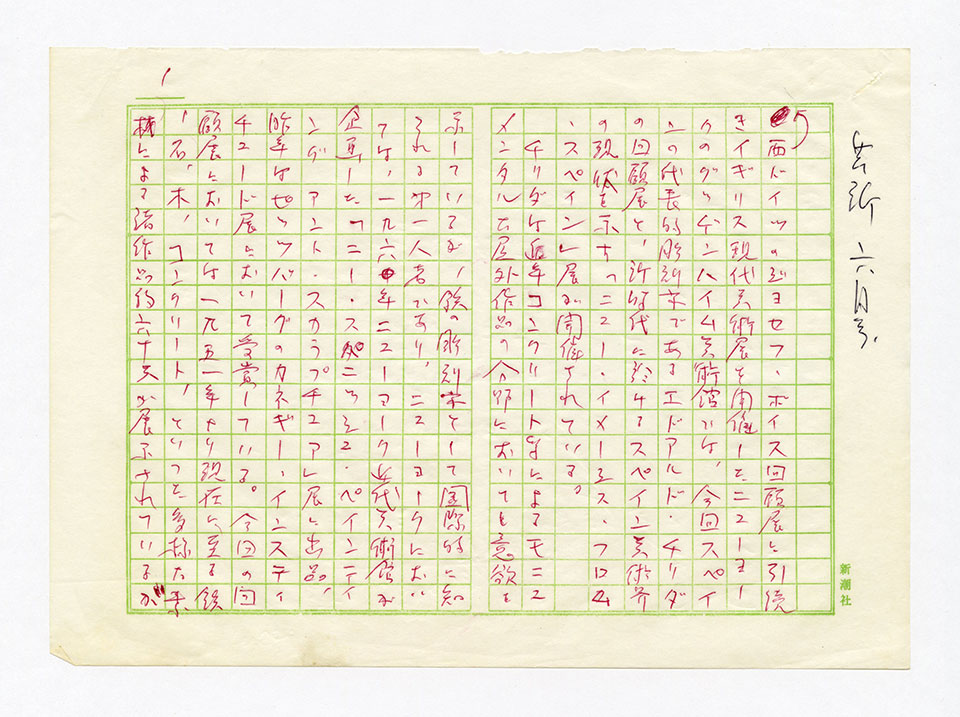 芸新 六月号
5
西ドイツのヨセフ・ボイス回顧展に引続
きイギリス現代美術展を開催したニューヨー
クのグッゲンハイム美術館では、今回スペイ
ンの代表的彫刻家であるエドアルド・チリダ
の回顧展と、新時代に於けるスペイン美術界
の現状を示す「ニュー・イメージス・フロム
・スペイン」展が開催されている。
チリダは近年コンクリートなどによるモニュ
メンタルな屋外作品の分野においても意欲を
示しているが、鉄の彫刻家として国際的に知
られる第一人者であり、ニューヨークにおい
ては、一九六〇年ニューヨーク近代美術館が
企画した「ニュー・スパニッシュ・ペインティ
ング・アンド・スカラプチュア」展に出品、
昨年はピッツバーグのカネギー・インスティ
チュート展において受賞している。今回の回
顧展においては一九五一年より現在に至る鉄
、石、木、コンクリート、といった多様な素
材による諸作品約六十点が展示されているが
1
新潮社